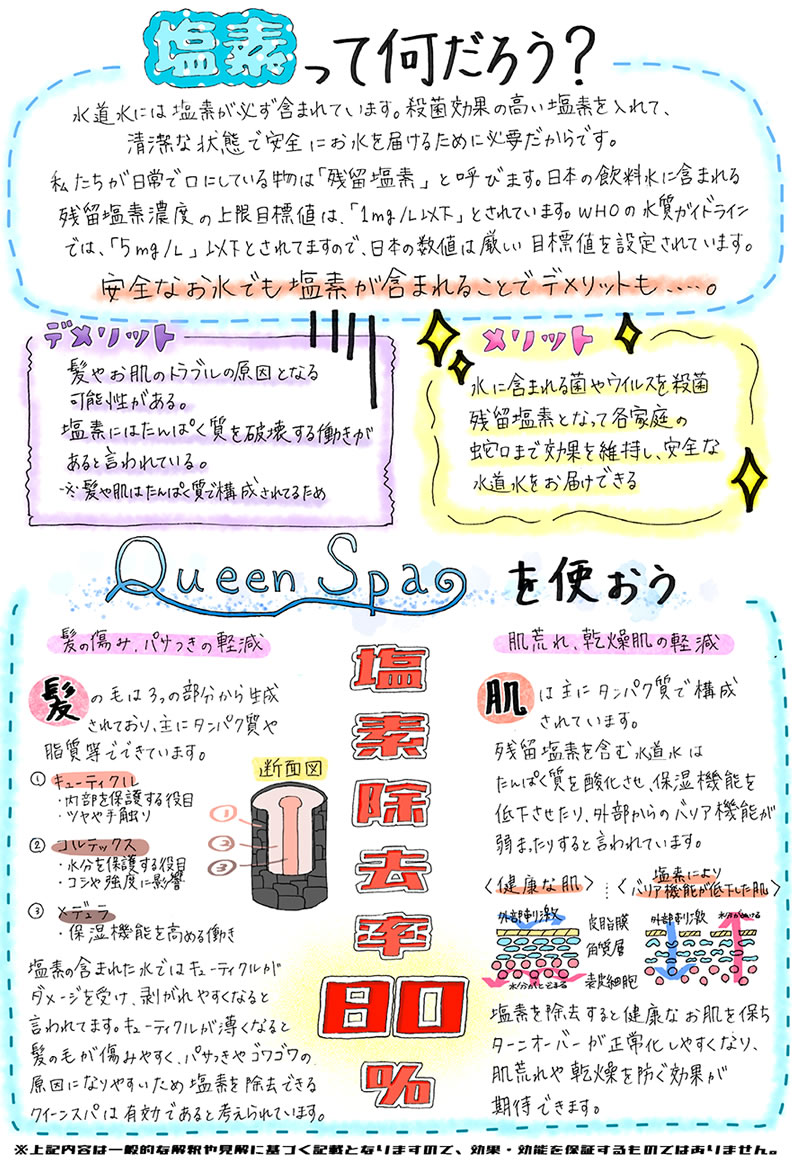 塩素って何だろう？
水道水には塩素が必ず含まれています。殺菌効果の高い塩素を入れて、
清潔な状態で安全にお水を届けるために必要だからです。
私たちが日常で口にしている物は「残留塩素」と呼びます。日本の飲料水に含まれる
残留塩素濃度の上限目標値は、「1mg/L以下」とされています。WHOの水質ガイドライン
では、「5mg/L」以下とされてますので、日本の数値は厳しい目標値を設定されています。
安全なお水でも塩素が含まれることでデメリットも……。
デメリット
髪やお肌のトラブルの原因となる
可能性がある。
塩素にはたんぱく質を破壊する働きが
あると言われている。
※髪や肌はたんぱく質で構成されてるため
メリット
水に含まれる菌やウイルスを殺菌
残留塩素となって各家庭の
蛇口まで効果を維持し、安全な
水道水をお届けできる
Queen Spa を使おう
髪の傷み、パサつきの軽減
髪の毛は3つの部分から生成
されており、主にタンパク質や
脂質等でできています。
① キューティクル
・内部を保護する役目
・ツヤや手触り
② コルテックス
・水分を保護する役目
・コシや強度に影響
③ メデュラ
・保湿機能を高める働き
断面図
①
②
③
塩素の含まれた水ではキューティクルが
ダメージを受け、剥がれやすくなると
言われてます。キューティクルが薄くなると
髪の毛が傷みやすく、パサつきやゴワゴワの
原因になりやすいため塩素を除去できる
クイーンスパは有効であると考えられています。
塩素除去率80%
肌荒れ、乾燥肌の軽減
肌は主にタンパク質で構成
されています。
残留塩素を含む水道水は
たんぱく質を酸化させ、保湿機能を
低下させたり、外部からのバリア機能が
弱まったりすると言われています。
〈健康な肌〉…〈塩素によりバリア機能が低下した肌〉
外部刺激
皮脂膜
角質層
表皮細胞
水分がとどまる
外部刺激
水分が逃げる
塩素を除去すると健康なお肌を保ち
ターンオーバーが正常化しやすくなり、
肌荒れや乾燥を防ぐ効果が
期待できます。
※上記内容は一般的な解釈や見解に基づく記載となりますので、効果・効能を保証するものではありません。